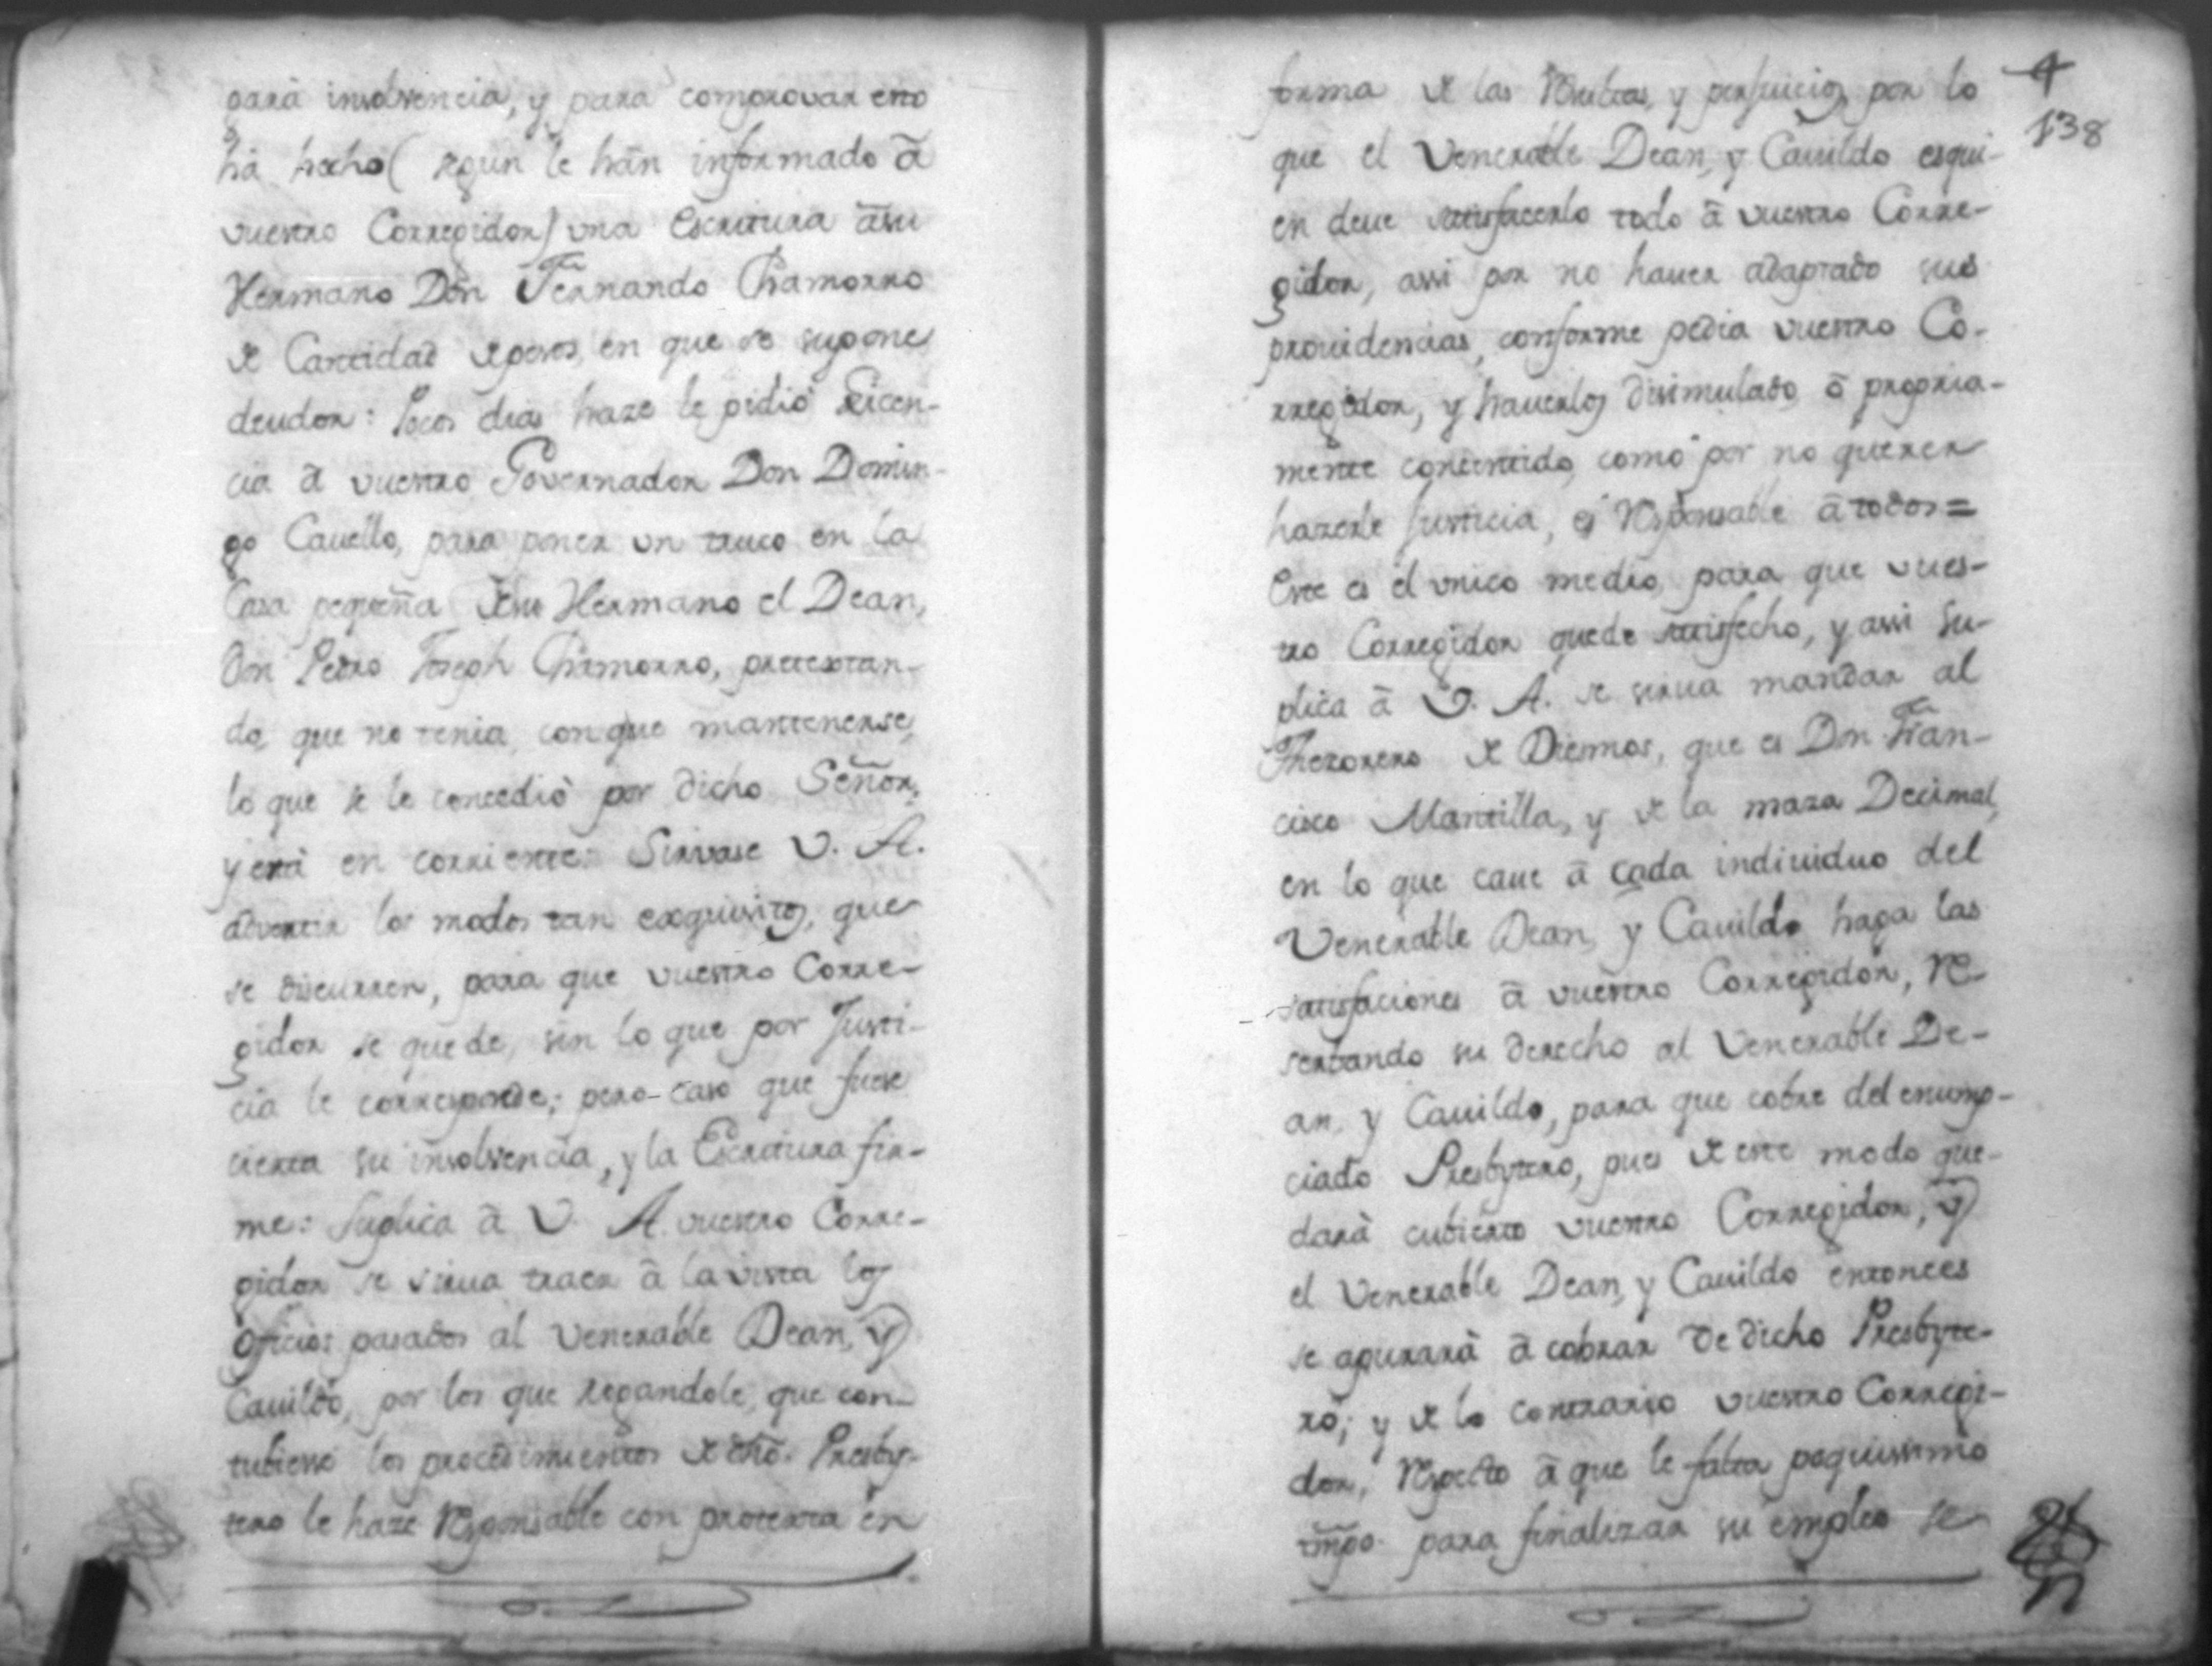 parà insolvencia, y para comprovar esto
hà hecho (segun le hān informado ā
vuestro Corregidor) vna Escritura āsu
Hermano Dōn Fernando Chamorro
de Cantidad depesos, en que se supone
deudor: Pocos dias haze le pidiò Licen-
cia ā vuestro Governador Don Domin-
go Cauello, para poner vn truco en la
Casa pequeña desu Hermano el Dean,
Don Pedro Joseph Chamorro, pretextan-
do, que no tenia, conque mantenerse,
lo que se le concediò por dicho Señor,
y està en corriente: Sirvase V. A.
advertir los modos tan exquisitos, que
se discurren, para que vuestro Corre-
gidor se quede, sin lo que por Justi-
cia le corresponde; pero-caso que fuese
cierta su insolvencia, y la Escritura fir-
me: Suplica ā V. A. vuestro Corre-
gidor se sirua traer ā lavista los
Oficios pasados al Venerable Dean, y
Cauildo, por los que rogandole, que con-
tubiesse los procedimientos de dhō. Presby-
tero le haze Responsable con protexta en
forma de las Resultas, y perjuicios, por lo
que el Venerable Dean, y Cauildo esqui-
en deue satisfacerlo todo ā vuestro Corre-
gidor, assi por no hauer adaptado sus
prouidencias, conforme pedia vuestro Co-
rregidor, y hauerlos disimulado, ō propria-
mente consentido, como por no querer
hazerle Justicia, es Responsable ā todos=
Este es el vnico medio, para que vues-
tro Corregidor quede satisfecho, y assi Su-
plica ā V. A. se sirua mandar al
Thezorero de Diesmos, que es Don Fran-
cisco Mantilla, y de la maza Decimal,
en lo que caue ā cada indiuiduo del
Venerable Dean, y Cauildo haga las
satisfaciones ā vuestro Corregidor, Re-
serbando su derecho al Venerable De-
an, y Cauildo, para que cobre del enump-
ciado Presbytero, pues de este modo que-
darà cubierto vuestro Corregidor, y
el Venerable Dean, y Cauildo entonces
se apurarà ā cobrar de dicho Presbyte-
ro; y de lo contrario vuestro Corregi-
dor, Respecto ā que le falta poquissimo
tmpō. para finalizar su empleo se
138